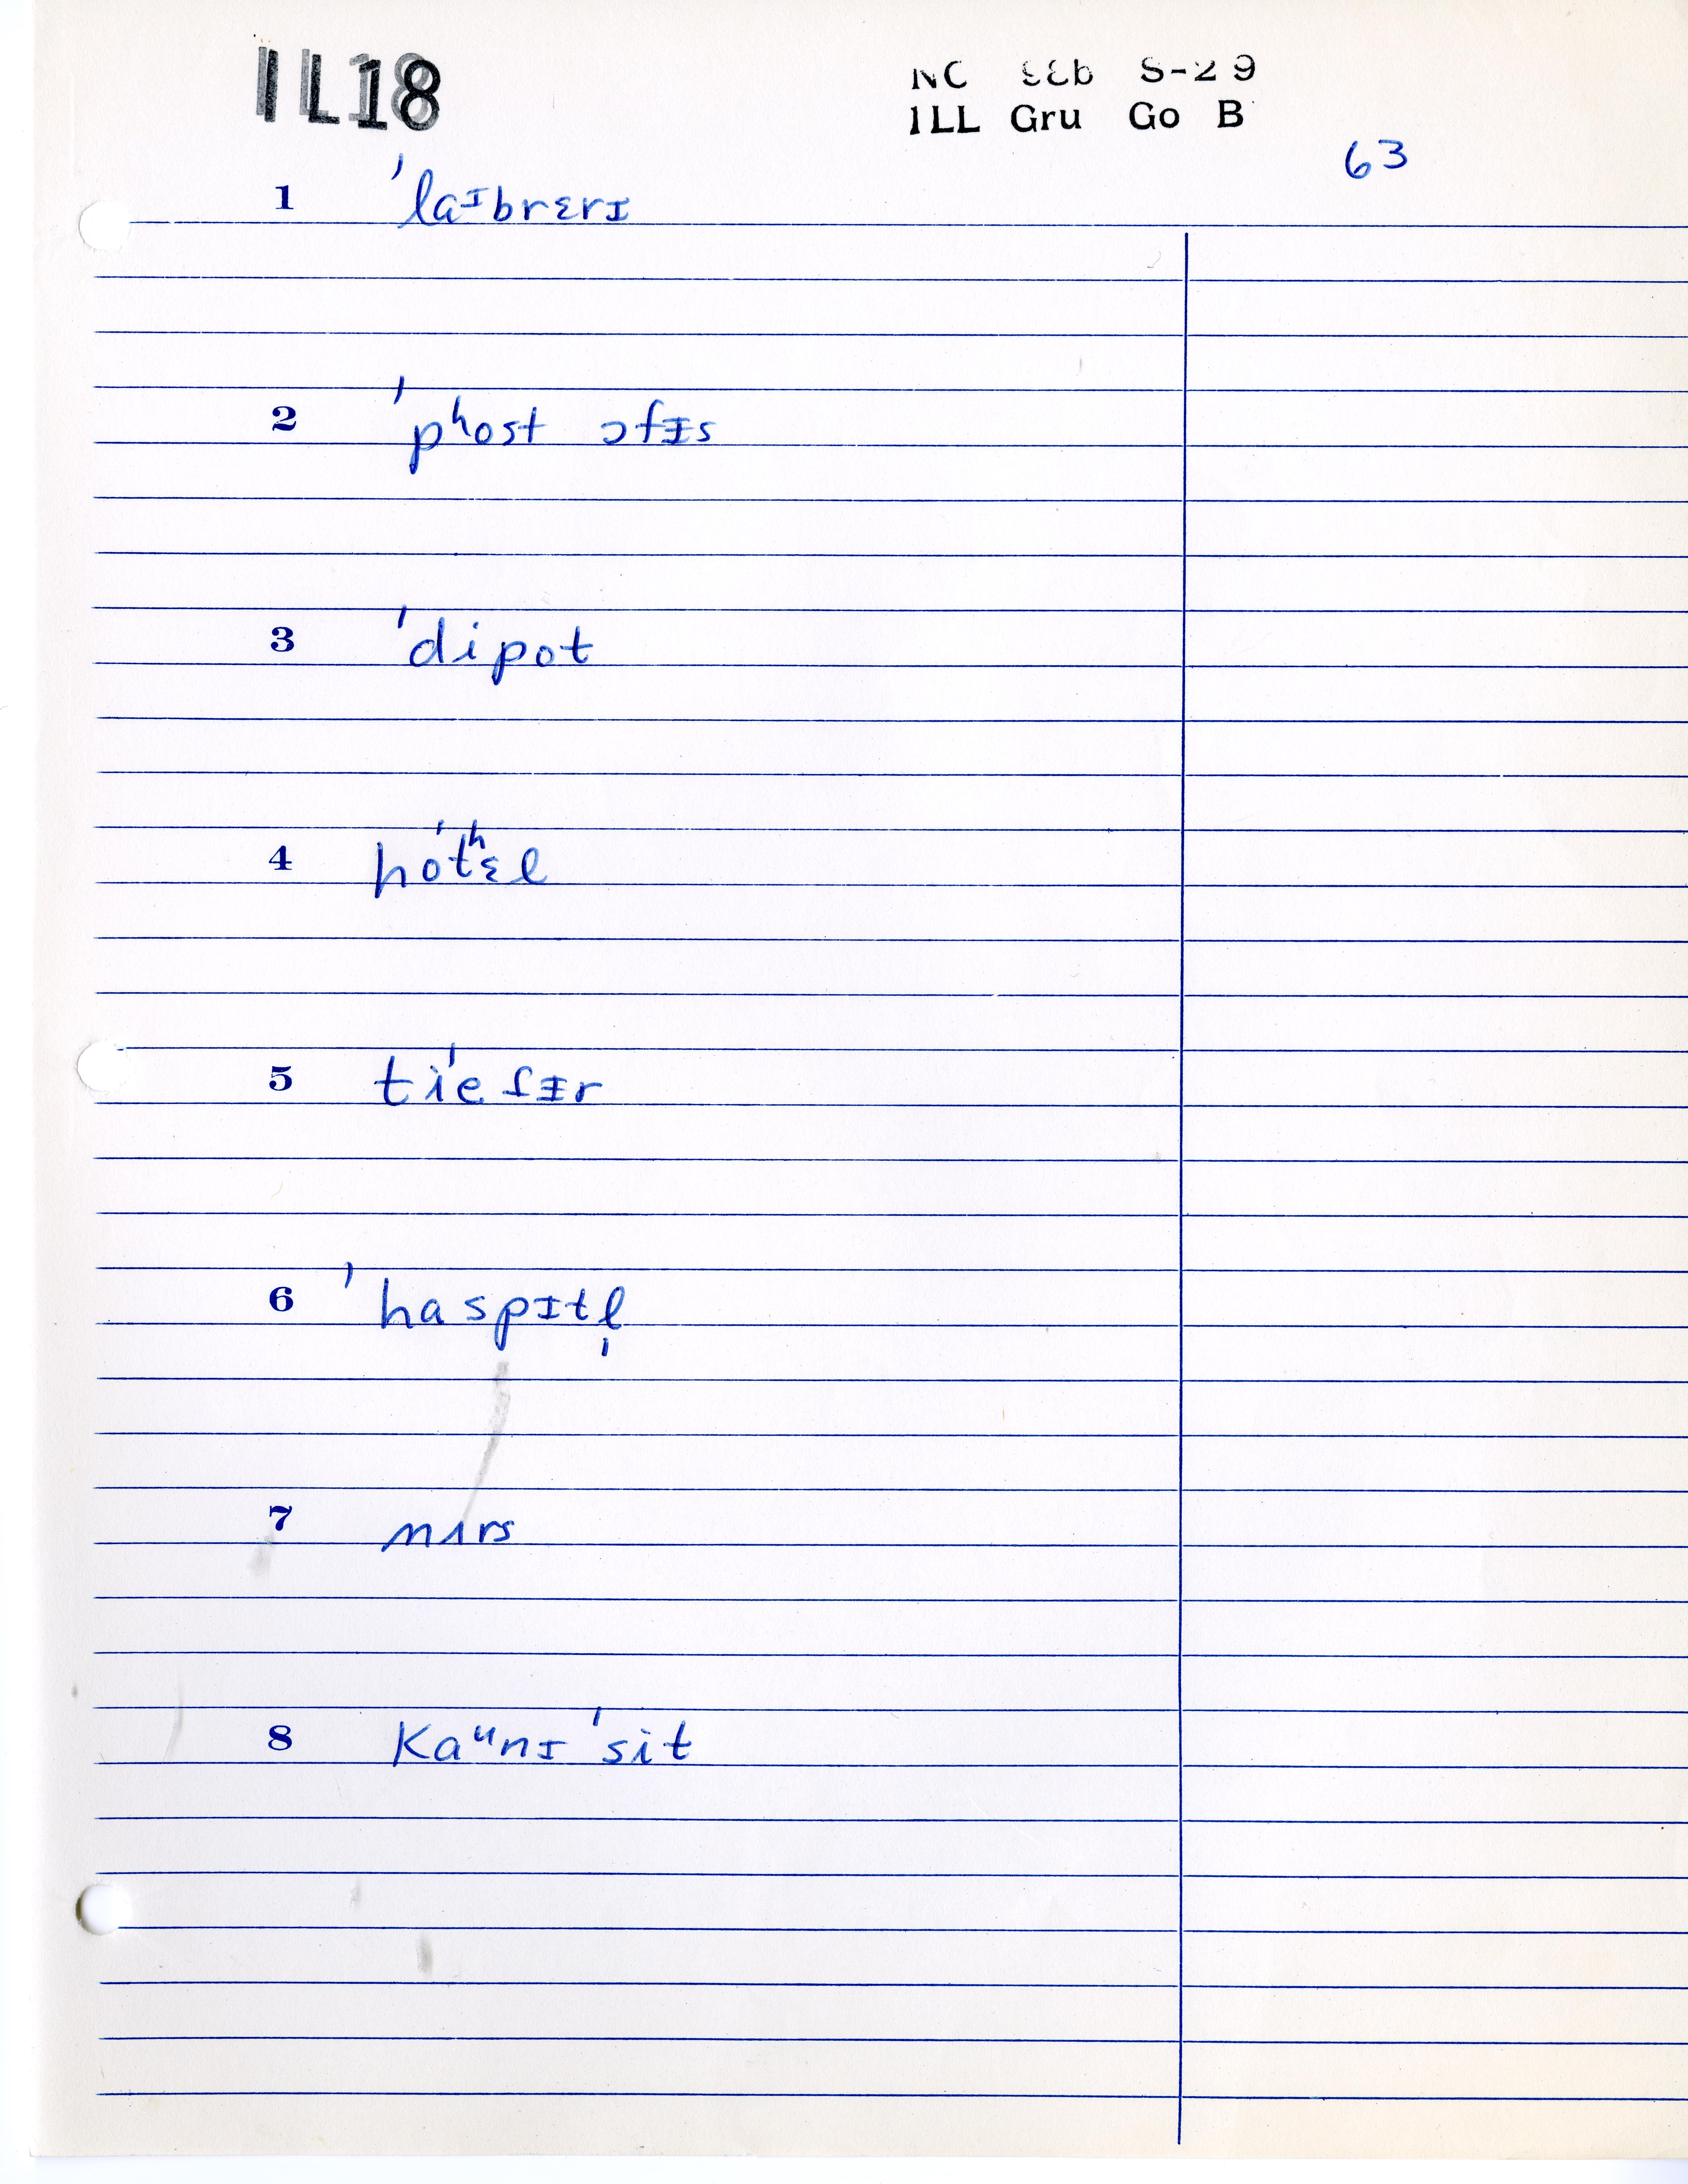 IL18
NC 33b S-29
ILL Gru Go B
63
1 ˈlaᶦbrɛrɪ
2 ˈpʰost ɔfɪs
3 ˈdipot
4 hoˈtʰɛl
5 tiˈeʃᵻr
6 ˈhaspɪtl̩
7 nɜrs
8 kaᵘnɪ ˈsit